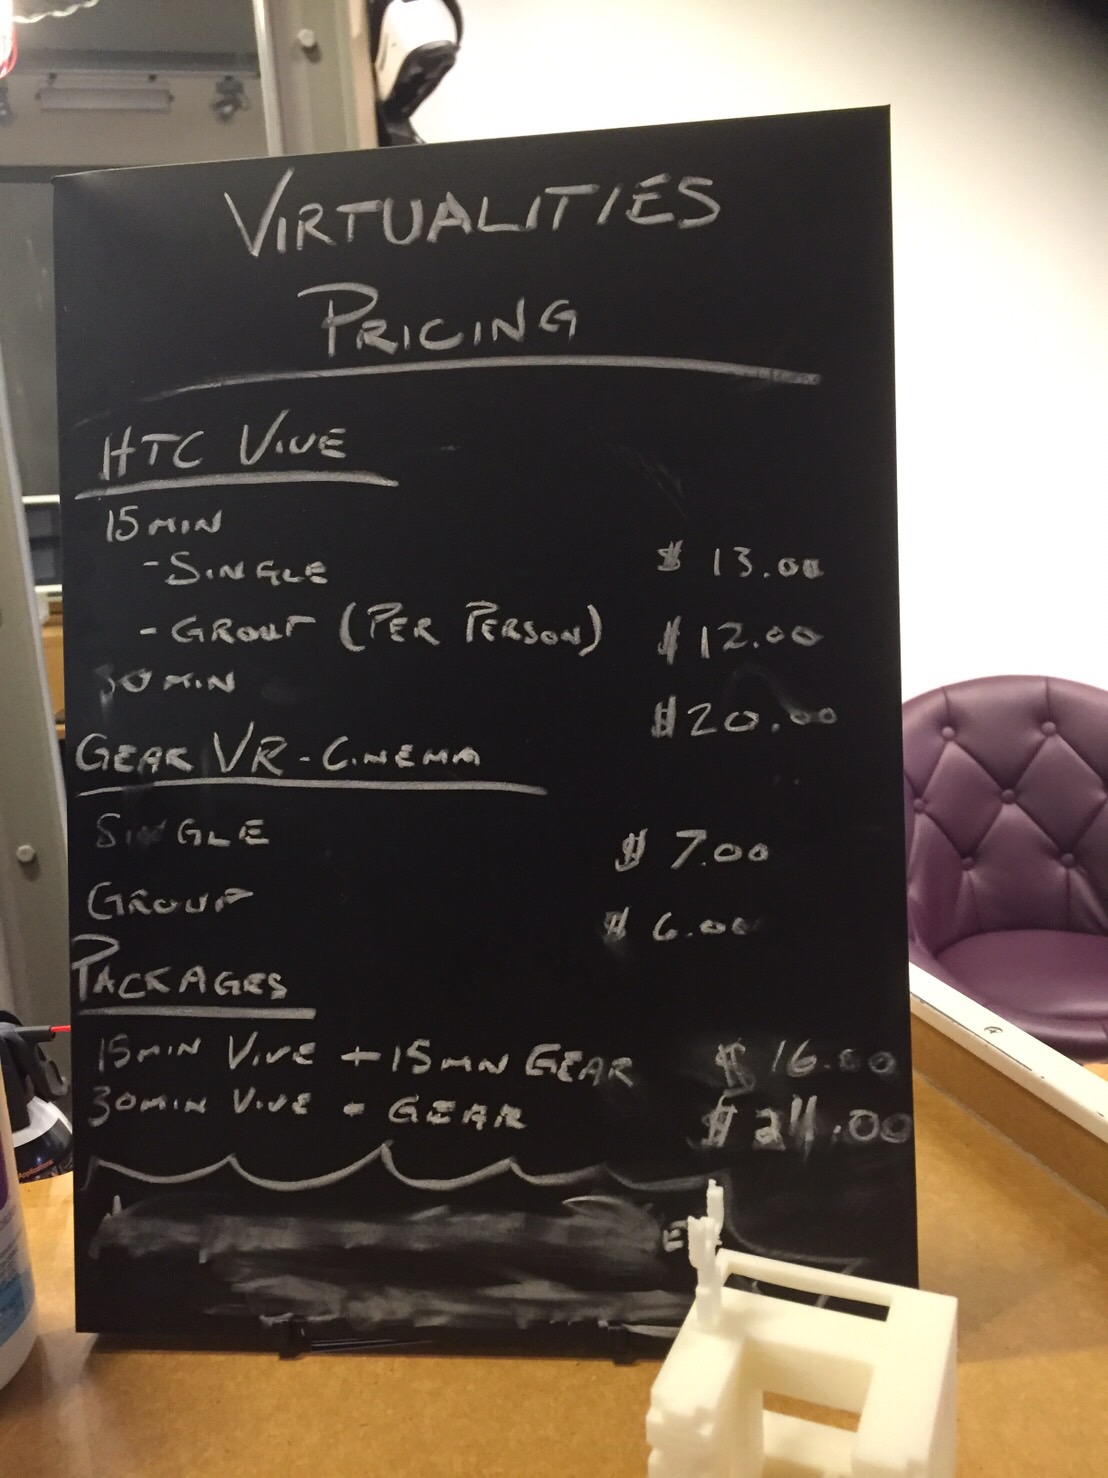 VIRTUALITIES
PRICING
HTC VIVE
15 MIN
- SINGLE $ 13.00
- GROUP (PER PERSON) $ 12.00
30 MIN $20.00
GEAR VR - CINEMA
SINGLE $ 7.00
GROUP $ 6.00
PACKAGES
15MIN VIVE + 15MIN GEAR $ 16.00
30MIN VIVE - GEAR $ 24.00